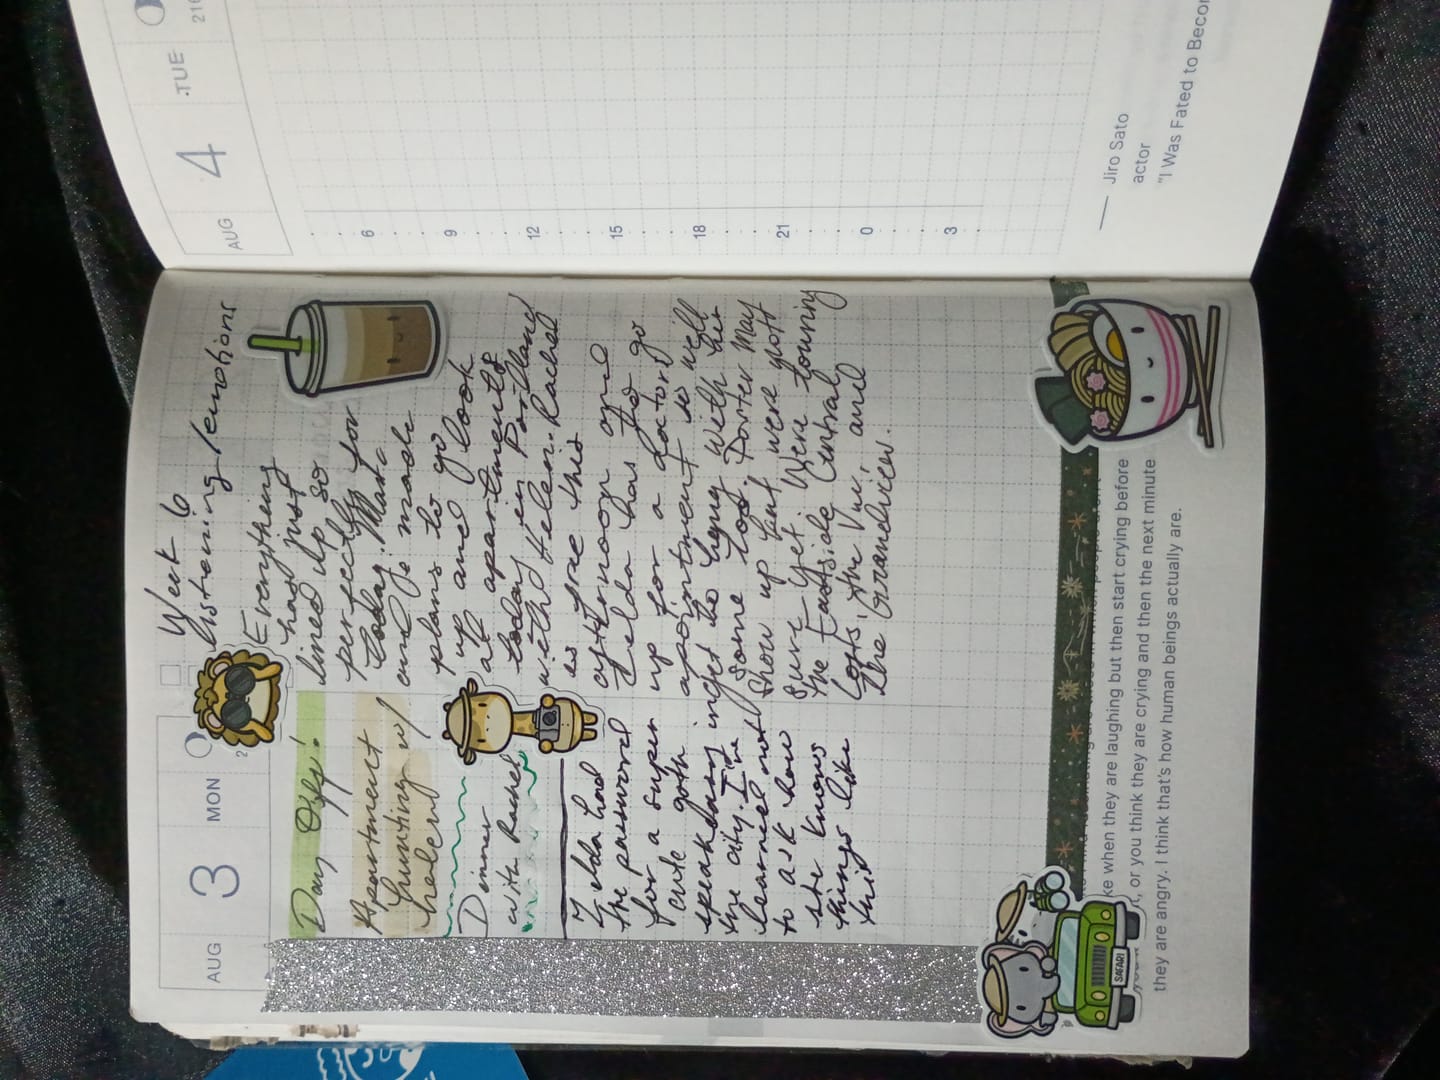 AUG
3
MON
2
Week 6
listening/emotions
Day Off!
Apartment
hunting w/
helen
Dinner
with Rachel
Zelda had
the password
for a super
cute goth
speakeasy in
the city. I've
learned not
to ask how
she knows
things like
this
Everything
has just
lined up so
perfectly for
today.
and Je made
plans to go
up and look
at apartments
today in Portland
with Helen. Rachel
is free this
afternoon and
Zelda has to go
up for a doctors
appointment so well
get to hang with her
some too. Porter may
show up but were not
sure yet. Were touring
the Eastside Central
Lofts, the Vue, and
the Grandview.
SAFARI
ke when they are laughing but then start crying before
t, or you think they are crying and then the next minute
they are angry. I think that's how human beings actually are.
AUG
4
.TUE
216
6
9
12
15
18
21
0
3
—— Jiro Sato
actor
"I Was Fated to Becor